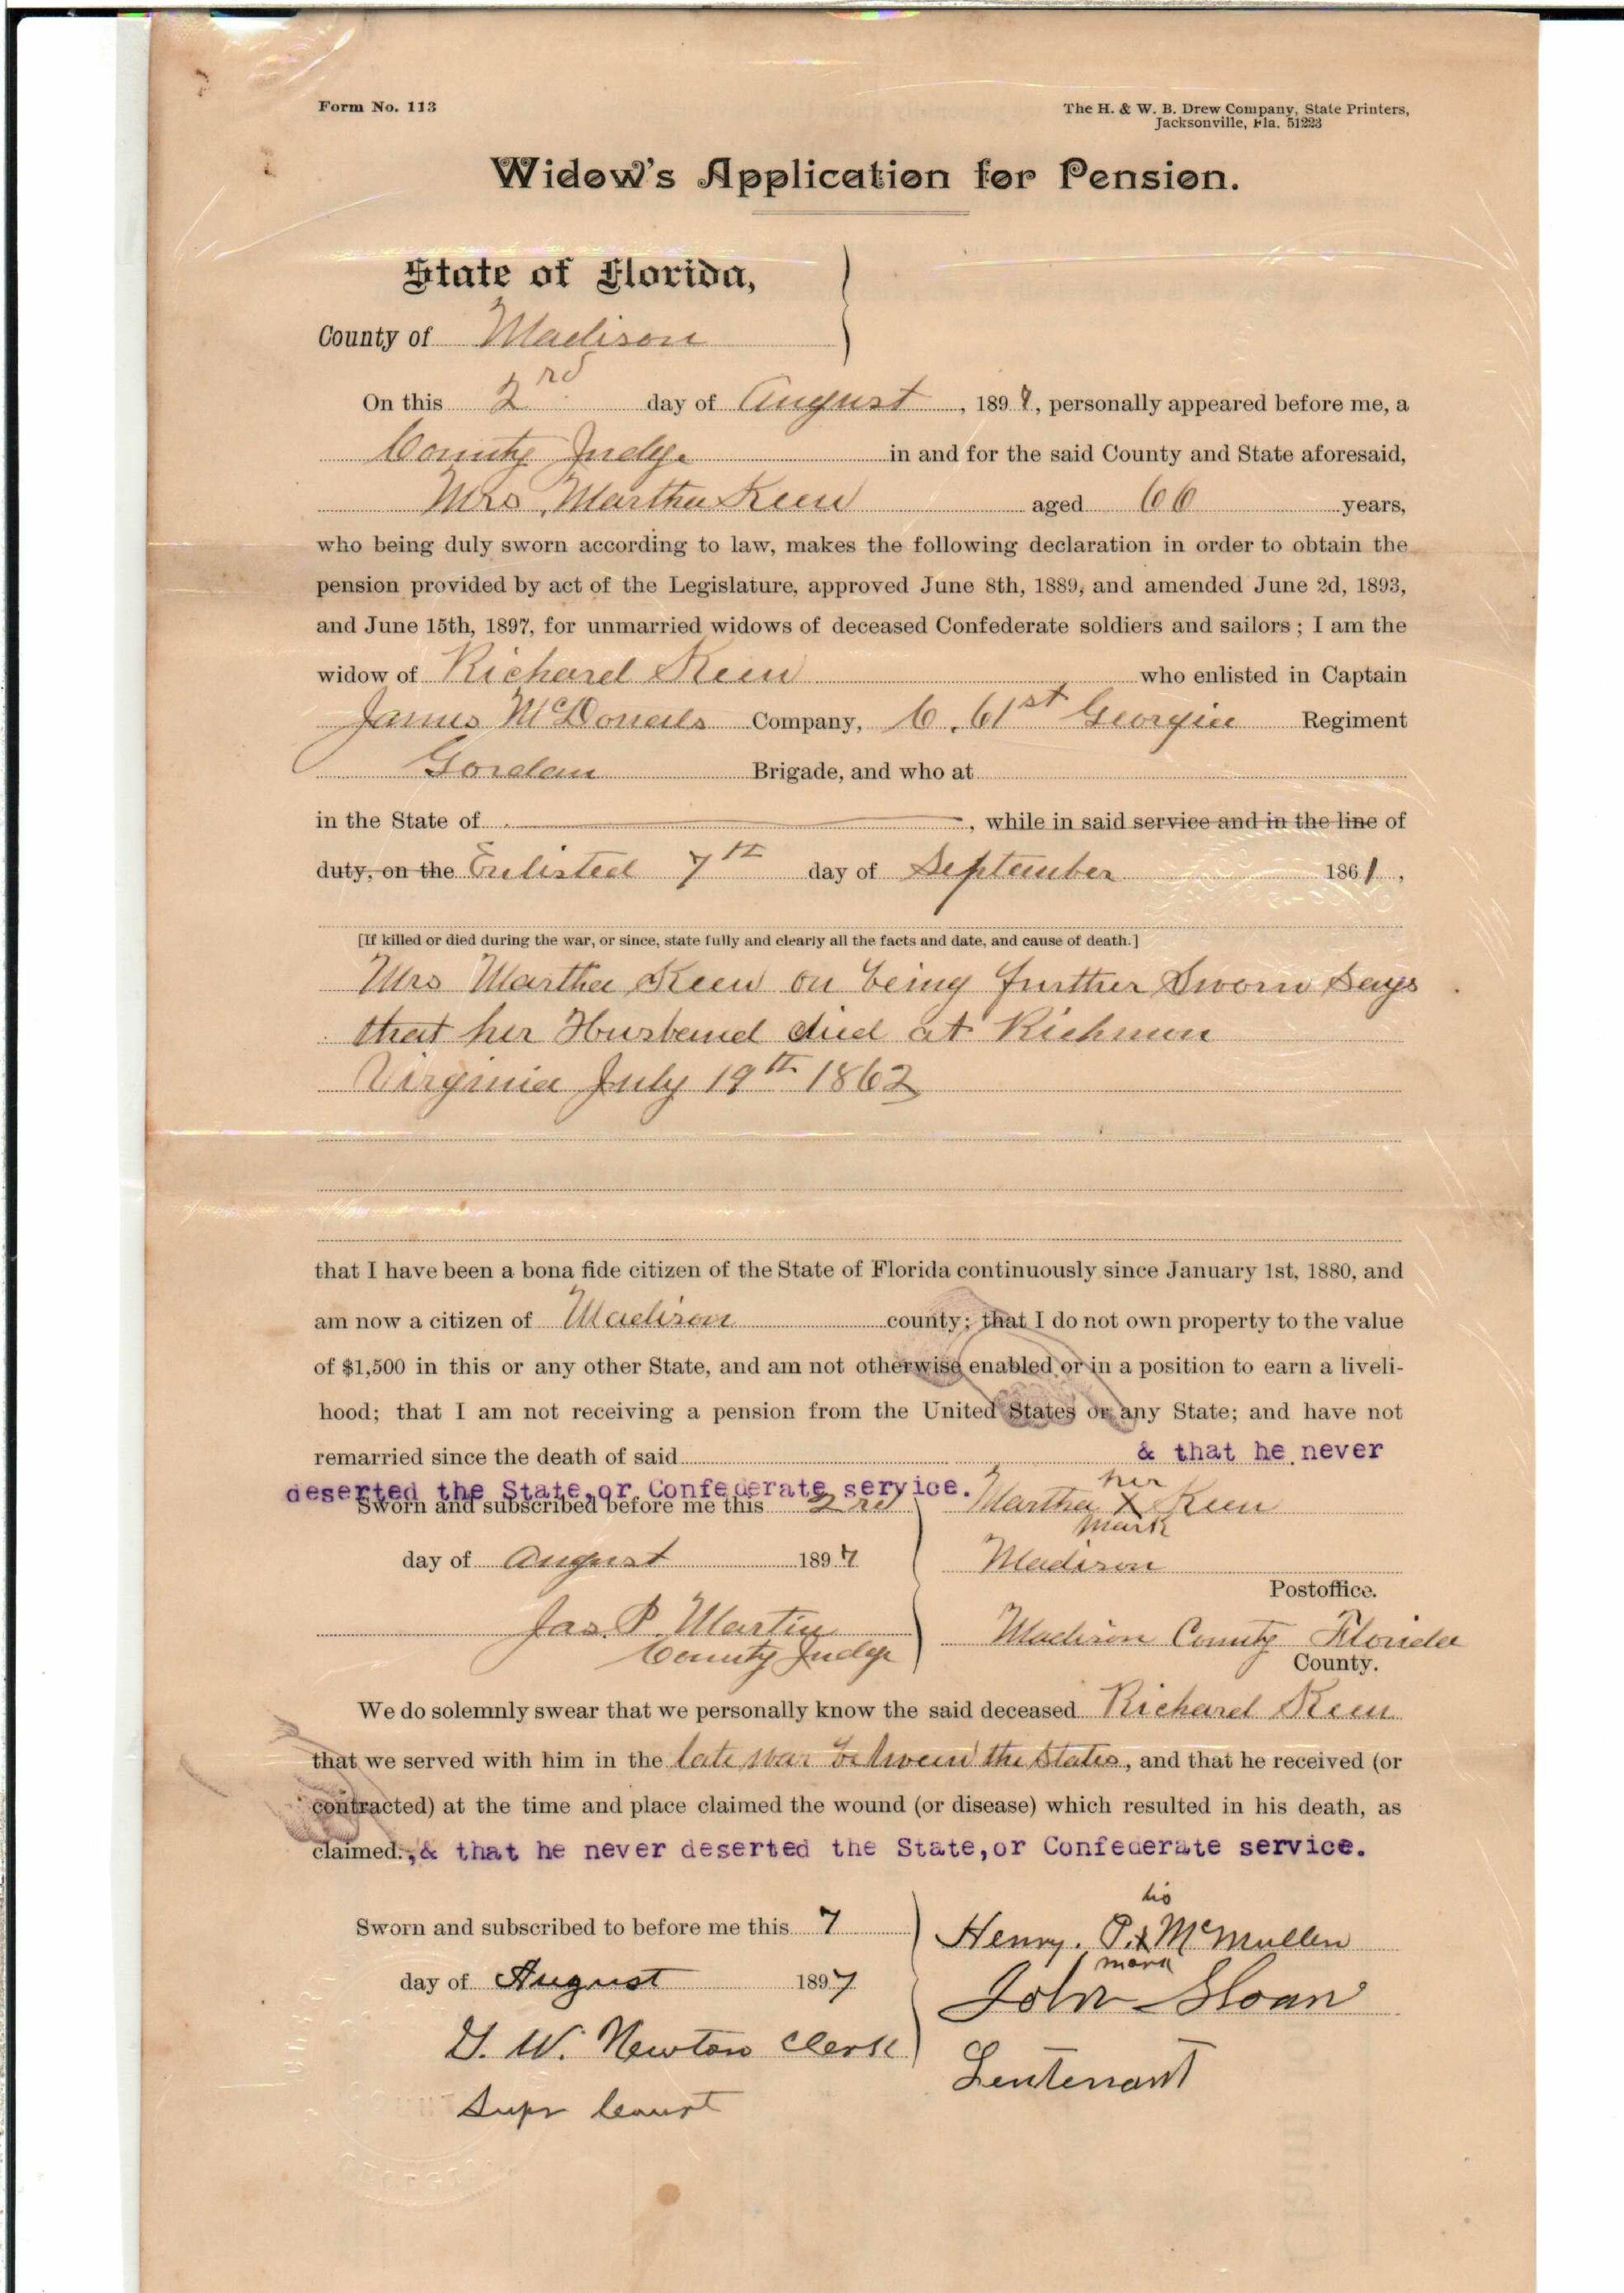 Form No. 113
The H. & W. B. Drew Company, State Printers,
Jacksonville, Fla. 51223
Widow's Application for Pension.
State of Florida,
County of Madison
On this 2rd day of August, 1897, personally appeared before me, a
County Judge in and for the said County and State aforesaid,
Mrs. Martha Keen aged 66 years,
who being duly sworn according to law, makes the following declaration in order to obtain the
pension provided by act of the Legislature, approved June 8th, 1889, and amended June 2d, 1893,
and June 15th, 1897, for unmarried widows of deceased Confederate soldiers and sailors; I am the
widow of Richard Keen who enlisted in Captain
James McDonalds Company, C. 61st Georgia Regiment
Gordan Brigade, and who at
in the State of , while in said service and in the line of
duty, on the Enlisted 7th day of September 1861,
[If killed or died during the war, or since, state fully and clearly all the facts and date, and cause of death.]
Mrs Martha Keen on being further Sworn Says
that her Husband died at Richmon
Virginia July 19th 1862
that I have been a bona fide citizen of the State of Florida continuously since January 1st, 1880, and
am now a citizen of Madison county; that I do not own property to the value
of $1,500 in this or any other State, and am not otherwise enabled or in a position to earn a liveli-
hood; that I am not receiving a pension from the United States or any State; and have not
remarried since the death of said & that he never
deserted the State,or Confederate service.
Sworn and subscribed before me this 2rd
her
Martha X Keen
mark
day of August 1897
Madison
Postoffice.
Jas. P. Martin
County Judge
Madison County Florida
County.
We do solemnly swear that we personally know the said deceased Richard Keen
that we served with him in the late war between the States, and that he received (or
contracted) at the time and place claimed the wound (or disease) which resulted in his death, as
claimed.,& that he never deserted the State,or Confederate service.
Sworn and subscribed to before me this 7
his
Henry. P. x McMullen
mark
day of August 1897
John Sloan
Leutenant
W. Newton Clerk
Supr Court